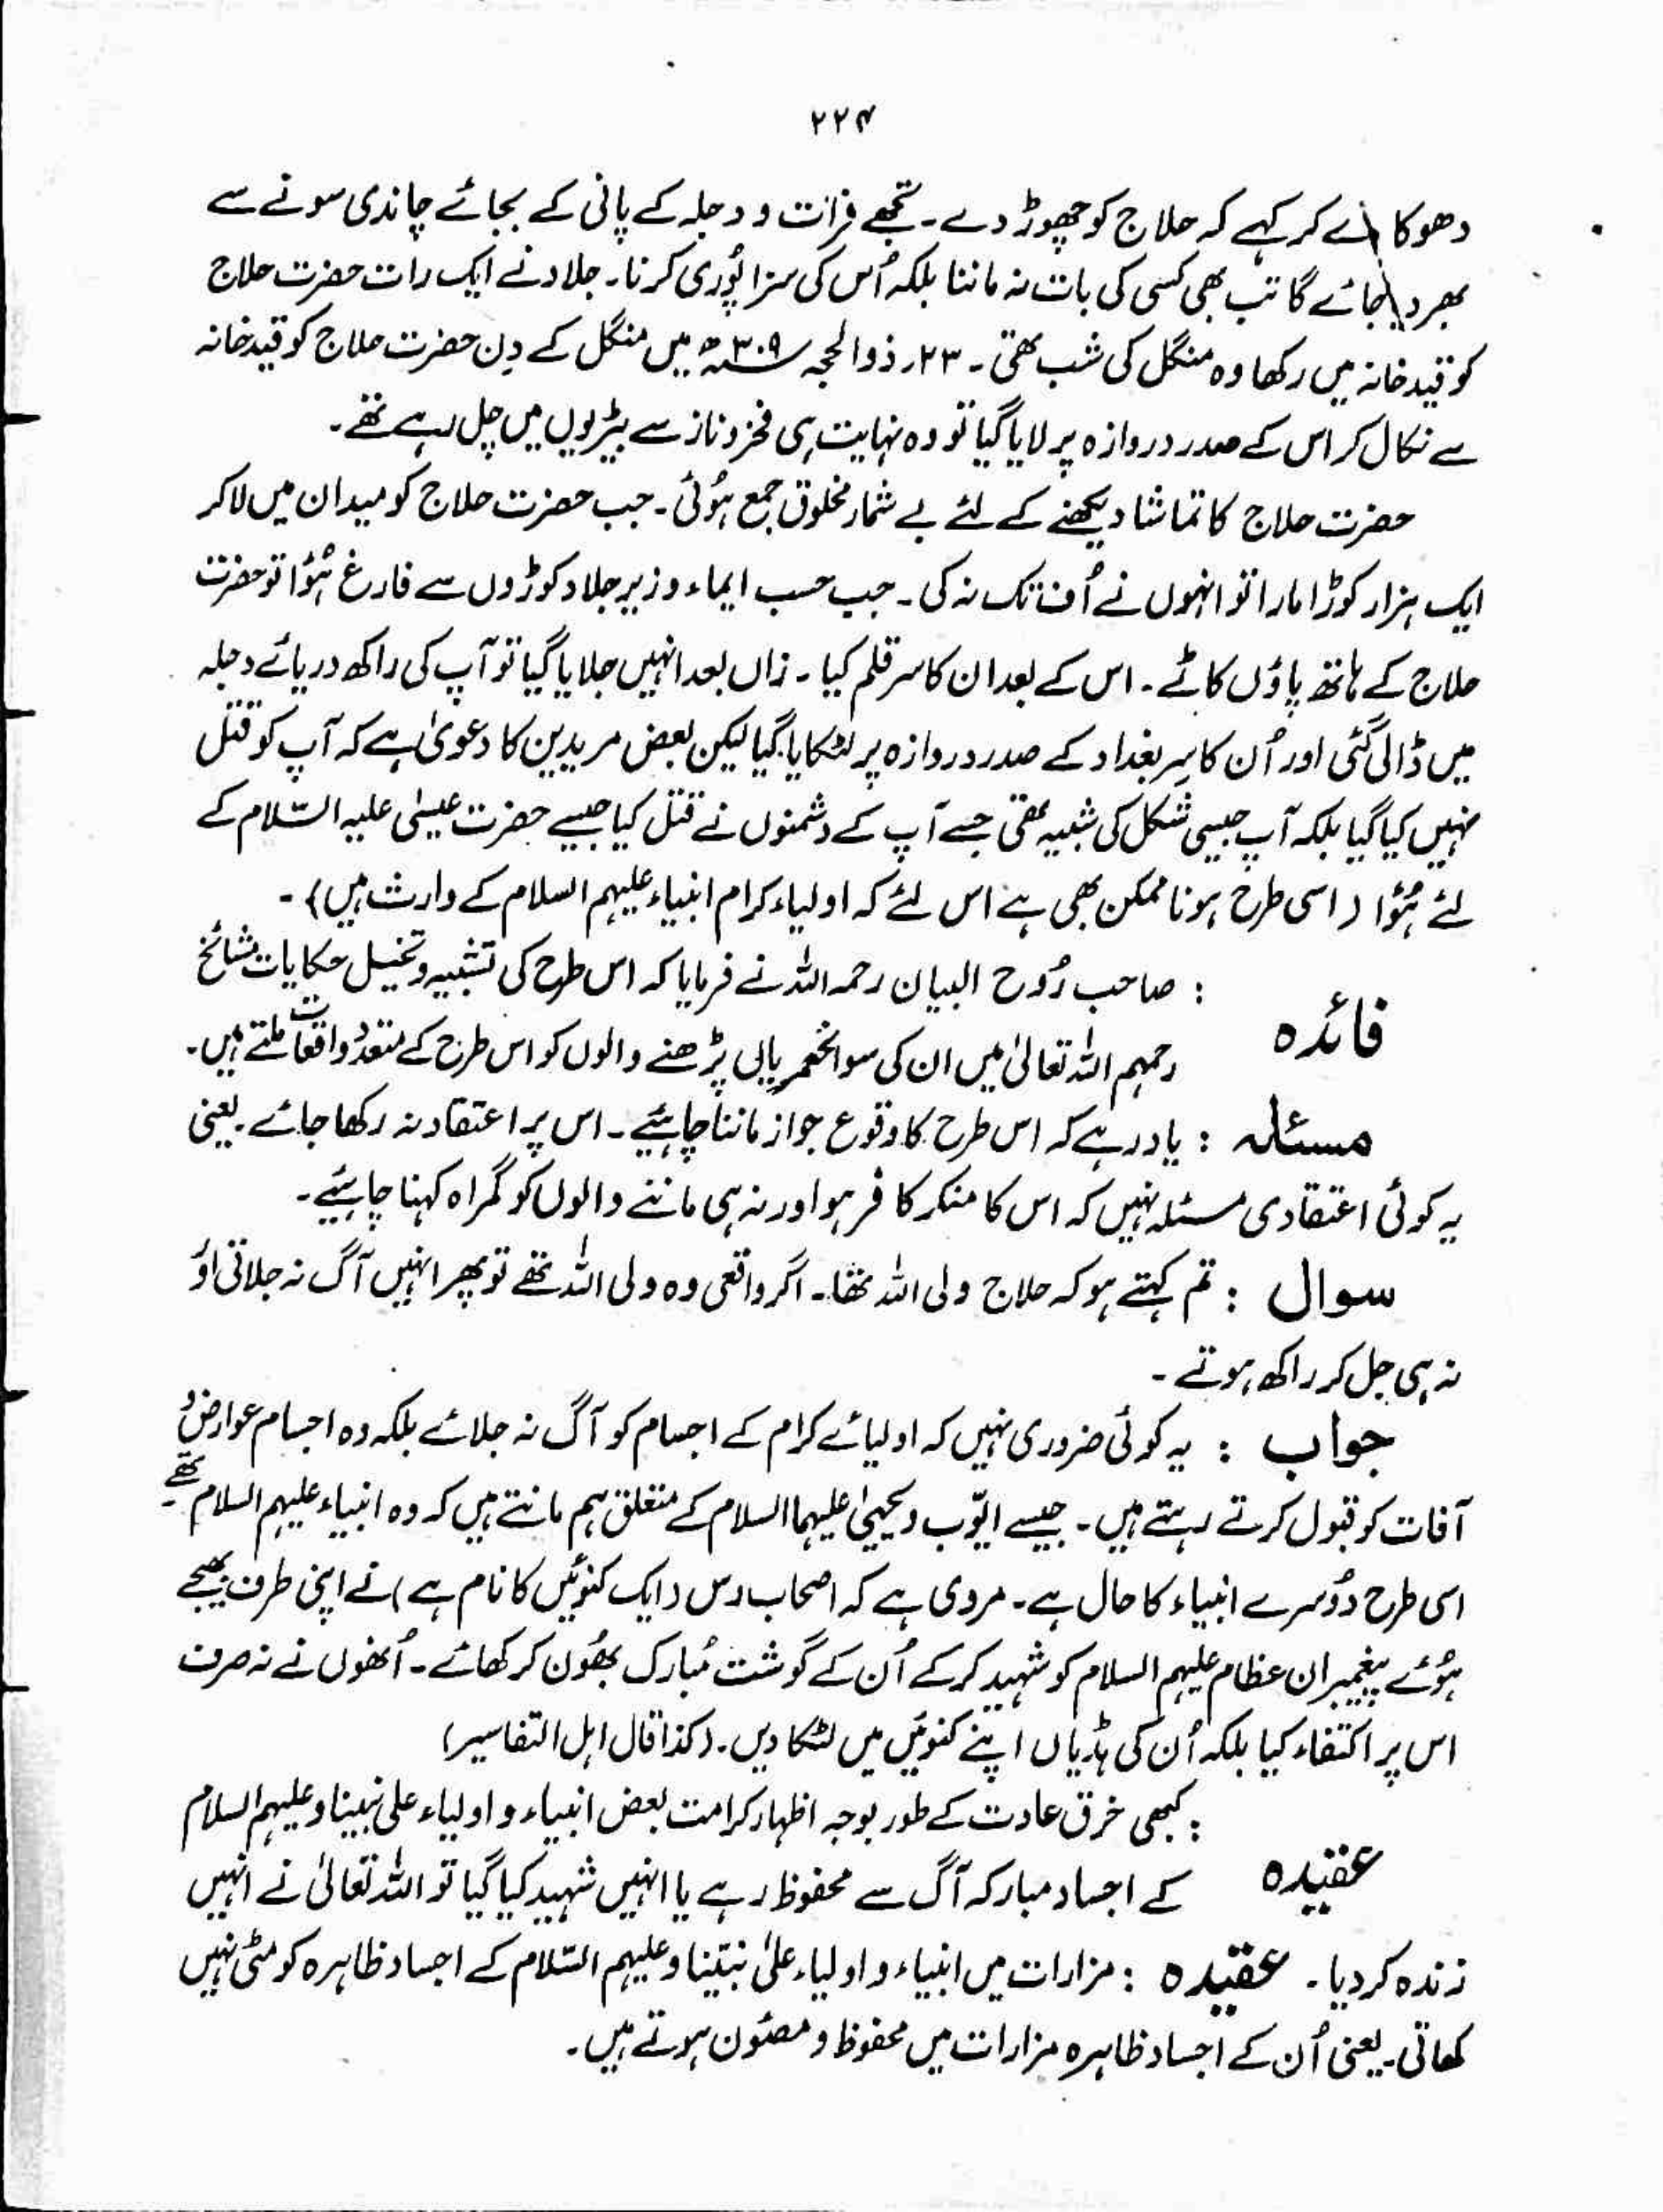 ۲۲۴
دھوکا دے کر کہے کہ حلاج کو چھوڑ دے۔ تجھے فرات و دجلہ کے پانی کے بجائے چاندی سونے سے
بھر دیا جائے گا تب بھی کسی کی بات نہ ماننا بلکہ اُس کی سزا پُوری کرنا۔ جلاد نے ایک رات حضرت حلاج
کو قید خانہ میں رکھا وہ منگل کی شب تھی۔ ۲۳؍ ذوالحجہ ۳۰۹ھ میں منگل کے دِن حضرت حلاج کو قید خانہ
سے نکال کر اس کے صدر دروازہ پر لایا گیا تو وہ نہایت ہی فخر و ناز سے بیڑیوں میں چل رہے تھے۔
حضرت حلاج کا تماشا دیکھنے کے لئے بے شمار مخلوق جمع ہُوئی۔ جب حضرت حلاج کو میدان میں لا کر
ایک ہزار کوڑا مارا تو انہوں نے اُف تک نہ کی۔ جب حسب ایماء وزیر جلاد کوڑوں سے فارغ ہُوا تو حضرت
حلاج کے ہاتھ پاؤں کاٹے۔ اس کے بعد ان کا سر قلم کیا۔ زاں بعد انہیں جلایا گیا تو آپ کی راکھ دریائے دجلہ
میں ڈالی گئی اور اُن کا سِر بغداد کے صدر دروازہ پر لٹکایا گیا لیکن بعض مریدین کا دعویٰ ہے کہ آپ کو قتل
نہیں کیا گیا بلکہ آپ جیسی شکل کی شبیہ تھی جسے آپ کے دشمنوں نے قتل کیا جیسے حضرت عیسٰی علیہ السّلام کے
لئے ہُوا (اسی طرح ہونا ممکن بھی ہے اس لئے کہ اولیاء کرام انبیاء علیہم السلام کے وارث ہیں)۔
فائدہ : صاحب رُوح البیان رحمہ اللہ نے فرمایا کہ اس طرح کی تشبیہ و تخییل حکایات مشائخ
رحمہم اللہ تعالیٰ میں ان کی سوانحعمریاں پڑھنے والوں کو اس طرح کے متعدد واقعات ملتے ہیں۔
مسئلہ : یاد رہے کہ اس طرح کا وقوع جواز ماننا چاہئیے۔ اس پر اعتقاد نہ رکھا جائے۔ یعنی
یہ کوئی اعتقادی مسئلہ نہیں کہ اس کا منکر کافر ہو اور نہ ہی ماننے والوں کو گمراہ کہنا چاہئیے۔
سوال : تم کہتے ہو کہ حلاج ولی اللہ تھا۔ اگر واقعی وہ ولی اللہ تھے تو پھر انہیں آگ نہ جلاتی اوُ
نہ ہی جل کر راکھ ہوتے۔
جواب : یہ کوئی ضروری نہیں کہ اولیائے کرام کے اجسام کو آگ نہ جلائے بلکہ وہ اجسام عوارض و
آفات کو قبول کرتے رہتے ہیں۔ جیسے ایّوب و یحییٰ علیہما السلام کے متعلق ہم مانتے ہیں کہ وہ انبیاء علیہم السلام تھے۔
اسی طرح دُوسرے انبیاء کا حال ہے۔ مروی ہے کہ اصحاب رس (ایک کنوئیں کا نام ہے) نے اپنی طرف بھیجے
ہُوئے پیغمبران عظام علیہم السلام کو شہید کر کے اُن کے گوشت مُبارک بھُون کر کھائے۔ اُنھوں نے نہ صرف
اس پر اکتفاء کیا بلکہ اُن کی ہڈیاں اپنے کنوئیں میں لٹکا دیں۔ (کذا قال اہل التفاسیر)
عقیدہ : کبھی خرق عادت کے طور بوجہ اظہار کرامت بعض انبیاء و اولیاء علی نبینا و علیہم السلام
کے اجساد مبارکہ آگ سے محفوظ رہے یا انہیں شہید کیا گیا تو اللہ تعالیٰ نے انہیں
زندہ کر دیا۔ عقیدہ : مزارات میں انبیاء و اولیاء علیٰ نبیّنا و علیہم السّلام کے اجساد ظاہرہ کو مٹی نہیں
کھاتی۔ یعنی اُن کے اجساد ظاہرہ مزارات میں محفوظ و مصئون ہوتے ہیں۔